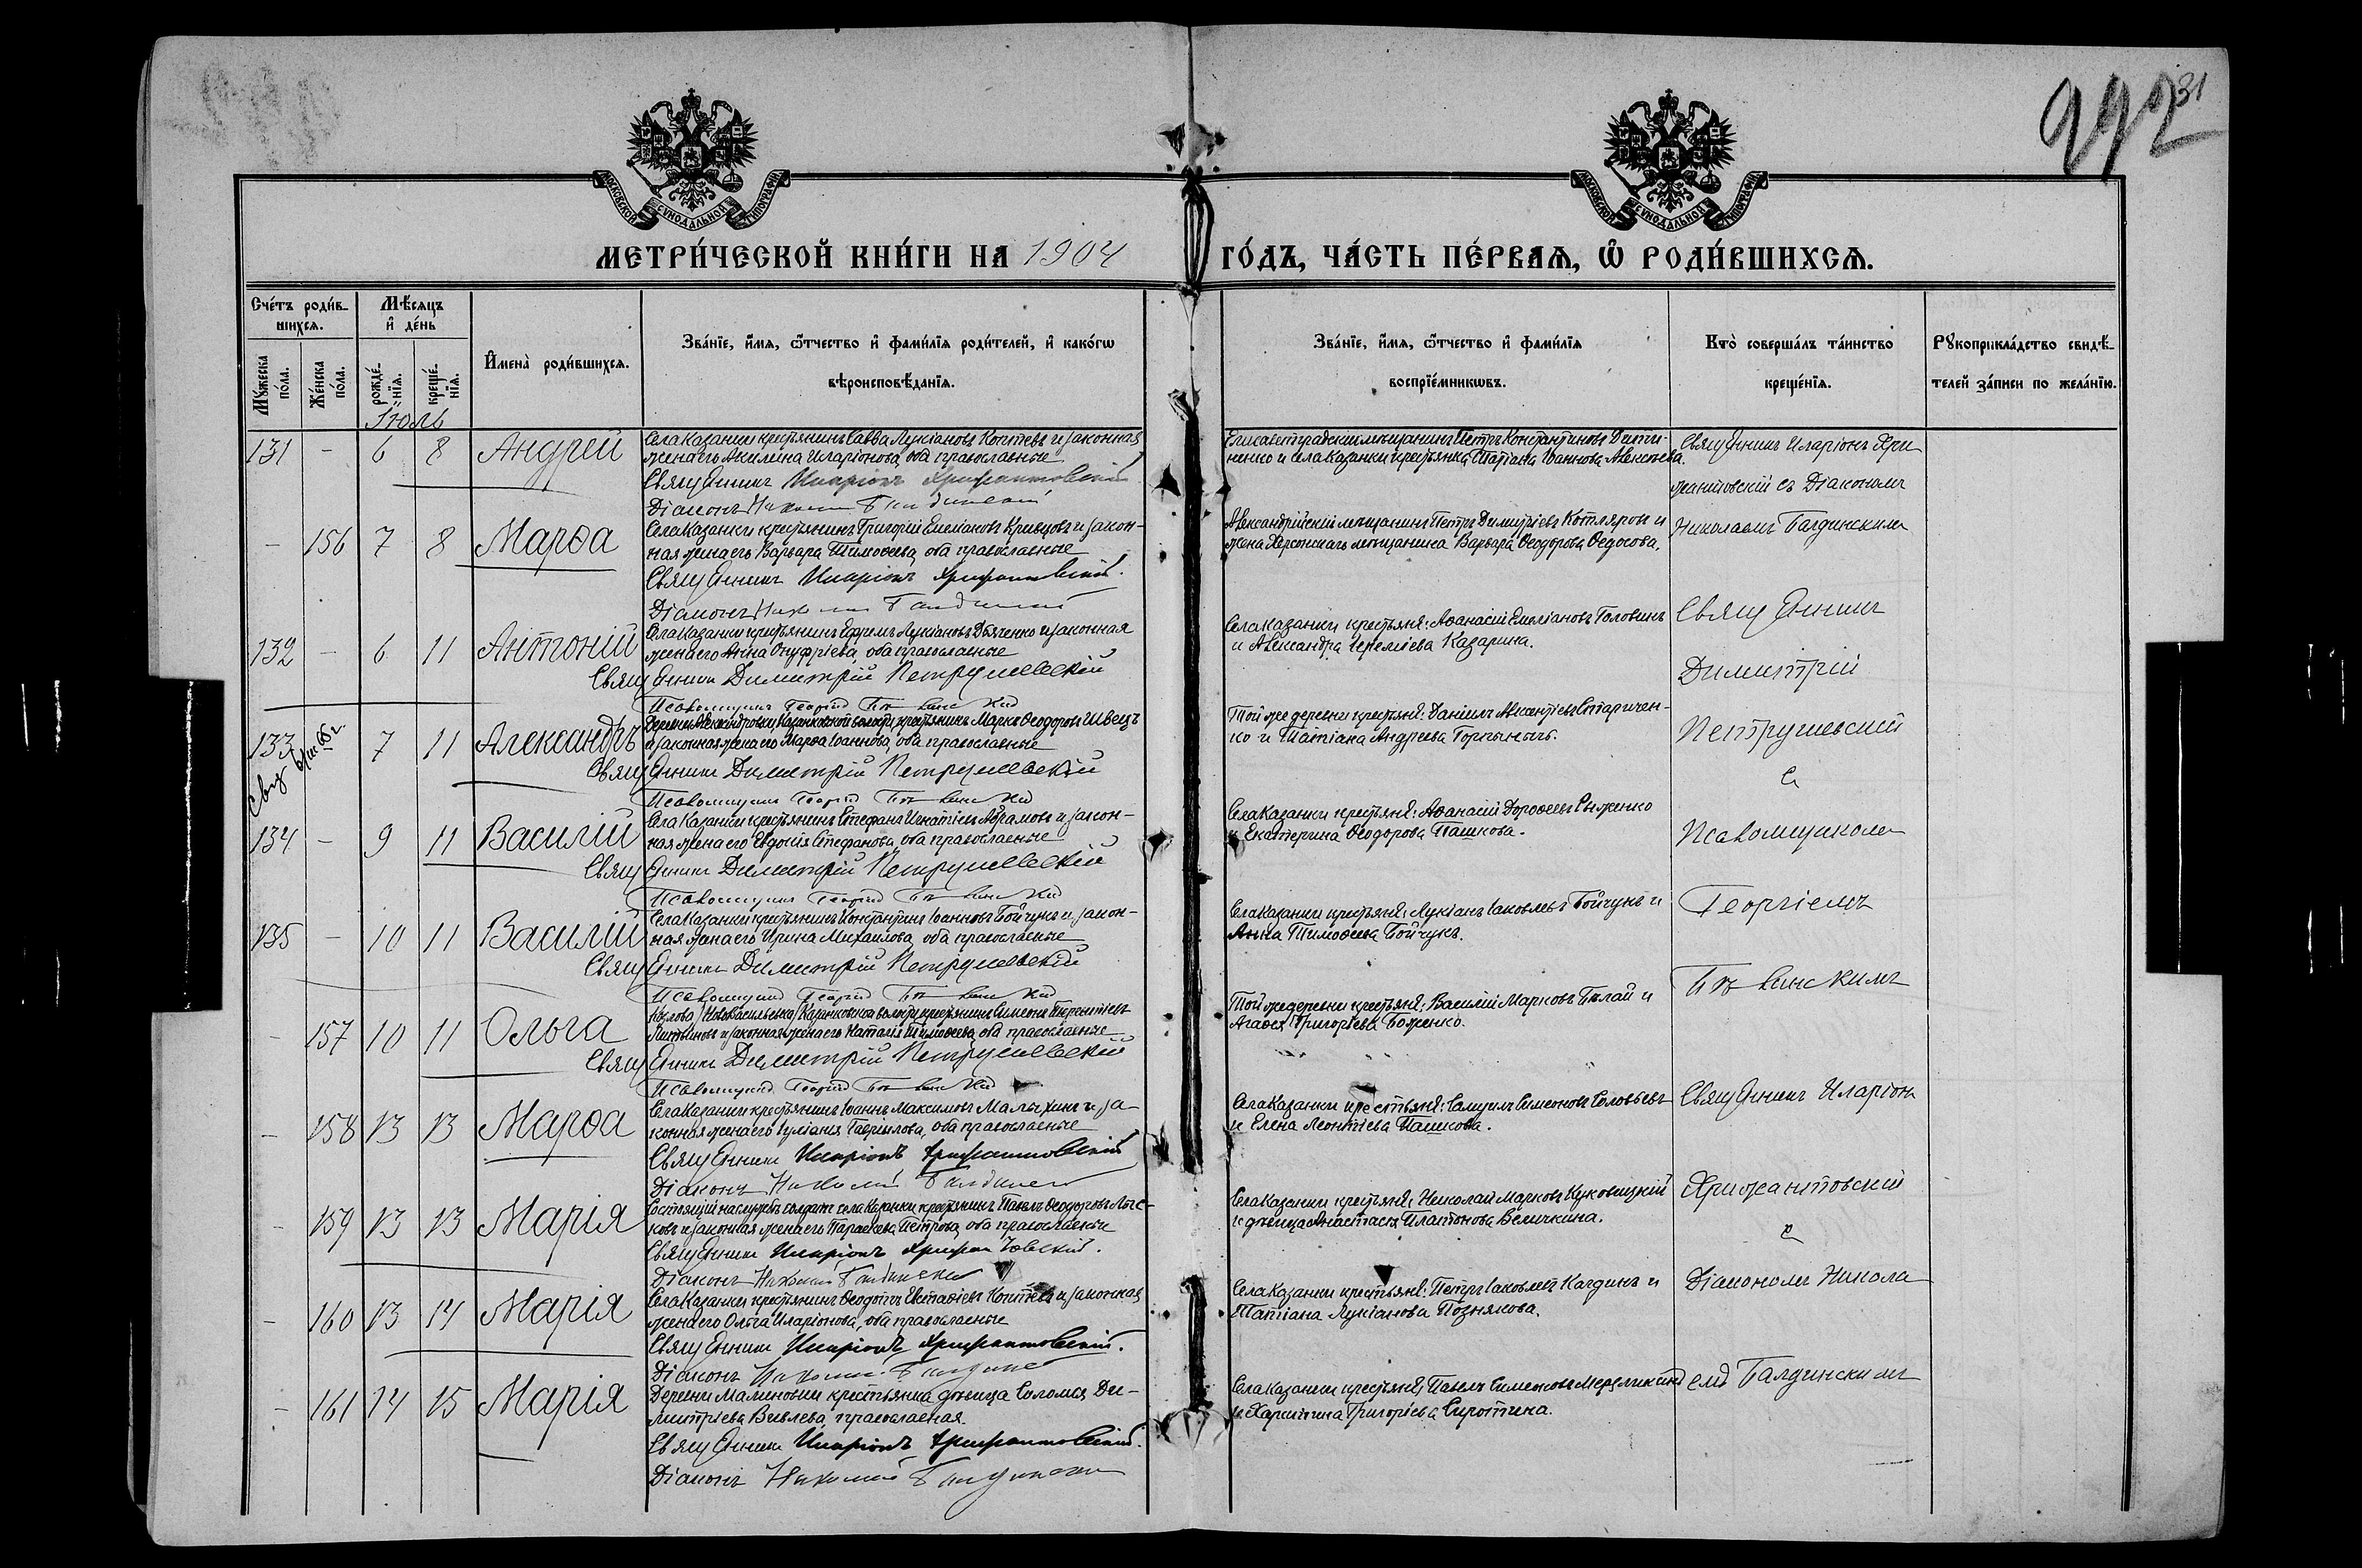 992
31
МОСКОВСКОЙ СѴНОДАЛЬНОЙ ТИПОГРАФІИ
МОСКОВСКОЙ СѴНОДАЛЬНОЙ ТИПОГРАФІИ
МЕТРИ́ЧЕСКОЙ КНИ́ГИ НА 1904 ГО́ДЪ, ЧА́СТЬ ПЕ́РВАѦ, Ѡ҆ РОДИ́ВШИХСѦ.
Сче́тъ роди́в-
шихсѧ.
Мꙋ́жеска по́ла.
Же́нска по́ла.
Мѣ́сѧцъ и҆ де́нь
рожде́-нїѧ.
креще́-нїѧ.
И҆мена̀ роди́вшихсѧ.
Зва́нїе, и҆́мѧ, ѻ҆́тчество и҆ фами́лїѧ роди́телей, и҆ како́гѡ
вѣроисповѣ́данїѧ.
Зва́нїе, и҆́мѧ, ѻ҆́тчество и҆ фами́лїѧ
воспрїе́мникѡвъ.
Кто̀ соверша́лъ та́инство
креще́нїѧ.
Рꙋкоприкла́дство свидѣ́-
телей за́писи по жела́нїю.
Іюль
131 - 6 8 Андрей
Села Казанки крестьянинъ Савва Лукіановъ Коптевъ и законная
жена его Акилина Иларіонова, оба православные
Священникъ Иларіонъ Хрисанфовскій
Діаконъ Николай
Елисаветградскій мещанинъ Петръ Константиновъ
ненко и села Казанки крестьянка Татіана Іоаннова Алексеева.
Священникъ Иларіонъ
съ Діакономъ
Николаемъ Балдинскимъ
- 156 7 8 Марѳа
Села Казанки крестьянинъ Григорій Емеліановъ Кривцовъ и закон-
ная жена его Варвара Тимоѳеева, оба православные
Священникъ Иларіонъ
Діаконъ Николай
Александрійскій мещанинъ Петръ Димитріевъ Котляровъ и
жена Херсонскаго мещанина Варвара Ѳеодорова Ѳедосова.
132 - 6 11 Антоній
Села Казанки крестьянинъ Ефремъ Лукіановъ Дьяченко и законная
жена его Анна Онуфріева, оба православные
Священникъ Димитрій Петрушевскій
Псаломщикъ Георгій
Села Казанки крестьяне: Аѳанасій Емеліановъ Головинъ
и Александра Іереміева Казарина.
Священникъ
Димитрій
Петрушевскій
с
Псаломщикомъ
Георгіемъ
133 7 11 Александръ
Деревни Александровки, Казанковской волости, крестьянинъ Марко Ѳеодоровъ Швецъ
и законная жена его Марѳа Іоаннова, оба православные
Священникъ Димитрій Петрушевскій
Псаломщикъ Георгій
Той же деревни крестьяне: Даніилъ Авксентіевъ Старичен-
ко и Татіана Андреева
134 - 9 11 Василій
Села Казанки крестьянинъ Стефанъ Игнатіевъ Абрамовъ и закон-
ная жена его Евдокія Стефанова, оба православные
Священникъ Димитрій Петрушевскій
Псаломщикъ Георгій
Села Казанки крестьяне: Аѳанасій Дороѳеевъ
и Екатерина Ѳеодорова Пашкова.
135 - 10 11 Василій
Села Казанки крестьянинъ Константинъ Іоанновъ Бойчукъ и закон-
ная жена его Ирина Михаилова, оба православные
Священникъ Димитрій Петрушевскій
Псаломщикъ Георгій
Села Казанки крестьяне: Лукіанъ Іаковлевъ Бойчукъ и
Анна Тимоѳеева Бойчукъ.
- 157 10 11 Ольга
Казанковской волости, крестьянинъ Симеонъ Терентіевъ
Литвиновъ и законная жена его Наталія Тимоѳеева, оба православные
Священникъ Димитрій Петрушевскій
Псаломщикъ Георгій
Той же деревни крестьяне: Василій Марковъ Білай и
Агаѳія Григорьева Боженко.
- 158 13 13 Марѳа
Села Казанки крестьянинъ Іоаннъ Максимовъ Малыхинъ и за-
конная жена его Іуліанія Гаврилова, оба православные
Священникъ Иларіонъ
Діаконъ Николай
Села Казанки крестьяне: Самуилъ Симеоновъ Соловьевъ
и Елена Леонтіева Пашкова.
Священникъ Иларіонъ
с
Діакономъ Никола
емъ Балдинскимъ
- 159 13 13 Марія
Состоящій на службѣ солдатъ села Казанки крестьянинъ Павелъ Ѳеодоровъ Лыс-
ковъ и законная жена его Параскева Петрова, оба православные
Священникъ Иларіонъ
Діаконъ Николай
Села Казанки крестьяне: Николай Марковъ Куковицкій
и дѣвица Анастасія Платонова Величкина.
- 160 13 14 Марія
Села Казанки крестьянинъ Ѳеодотъ Евстафіевъ Коптевъ и законная
жена его Ольга Иларіонова, оба православные
Священникъ Иларіонъ
Діаконъ Николай
Села Казанки крестьяне: Петръ Іаковлевъ Калдинъ и
Татіана Лукіанова Познякова.
- 161 14 15 Марія
Деревни Малиновки крестьянка дѣвица Соломія Ди-
митріева Вивлева, православная.
Священникъ Иларіонъ
Діаконъ Николай
Села Казанки крестьяне: Павелъ Симеоновъ Мерзликинъ
и Харитина Григорьева Сиротина.